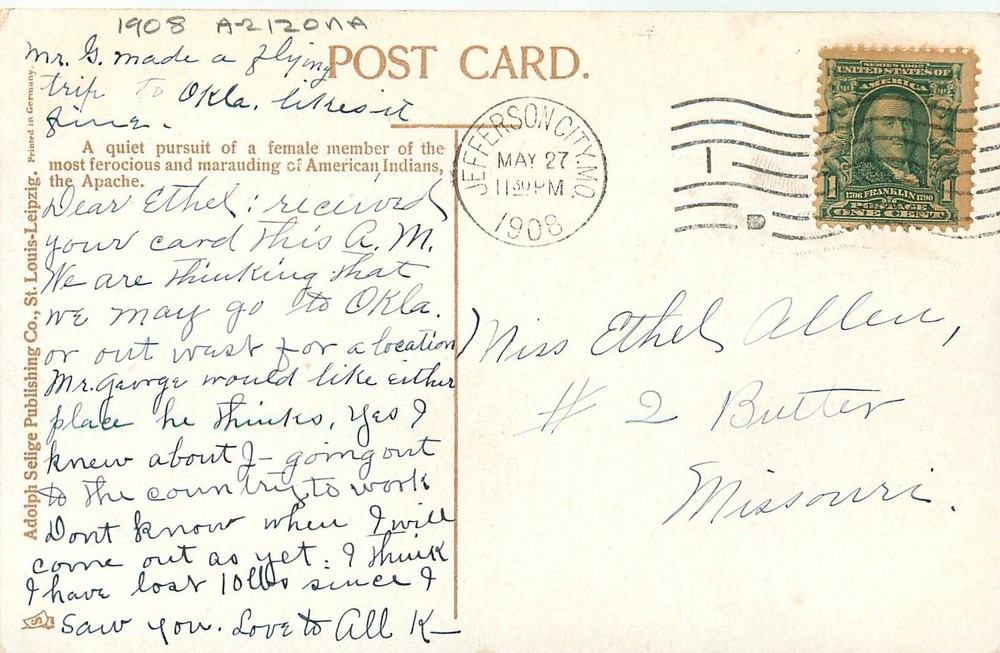 1908 ARIZONA
Mr. G. made a flying
trip to Okla. likes it
fine.
POST CARD.
A quiet pursuit of a female member of the
most ferocious and marauding of American Indians,
the Apache.
Dear Ethel: received
your card this A.M.
We are thinking that
we may go to Okla.
or out west for a location
Mr. George would like either
place he thinks. Yes I
knew about J- going out
to the country to work
Dont know when I will
come out as yet. I think
I have lost 10lbs since I
saw you. Love to All K—
Adolph Selige Publishing Co., St. Louis-Leipzig. Printed in Germany.
JEFFERSON CITY, MO.
MAY 27
11 30 PM
1908
1
SERIES 1902
UNITED STATES OF
AMERICA
1706 FRANKLIN 1790
1 1
POSTAGE
ONE CENT
Miss Ethel Allen,
# 2 Butler
Missouri.